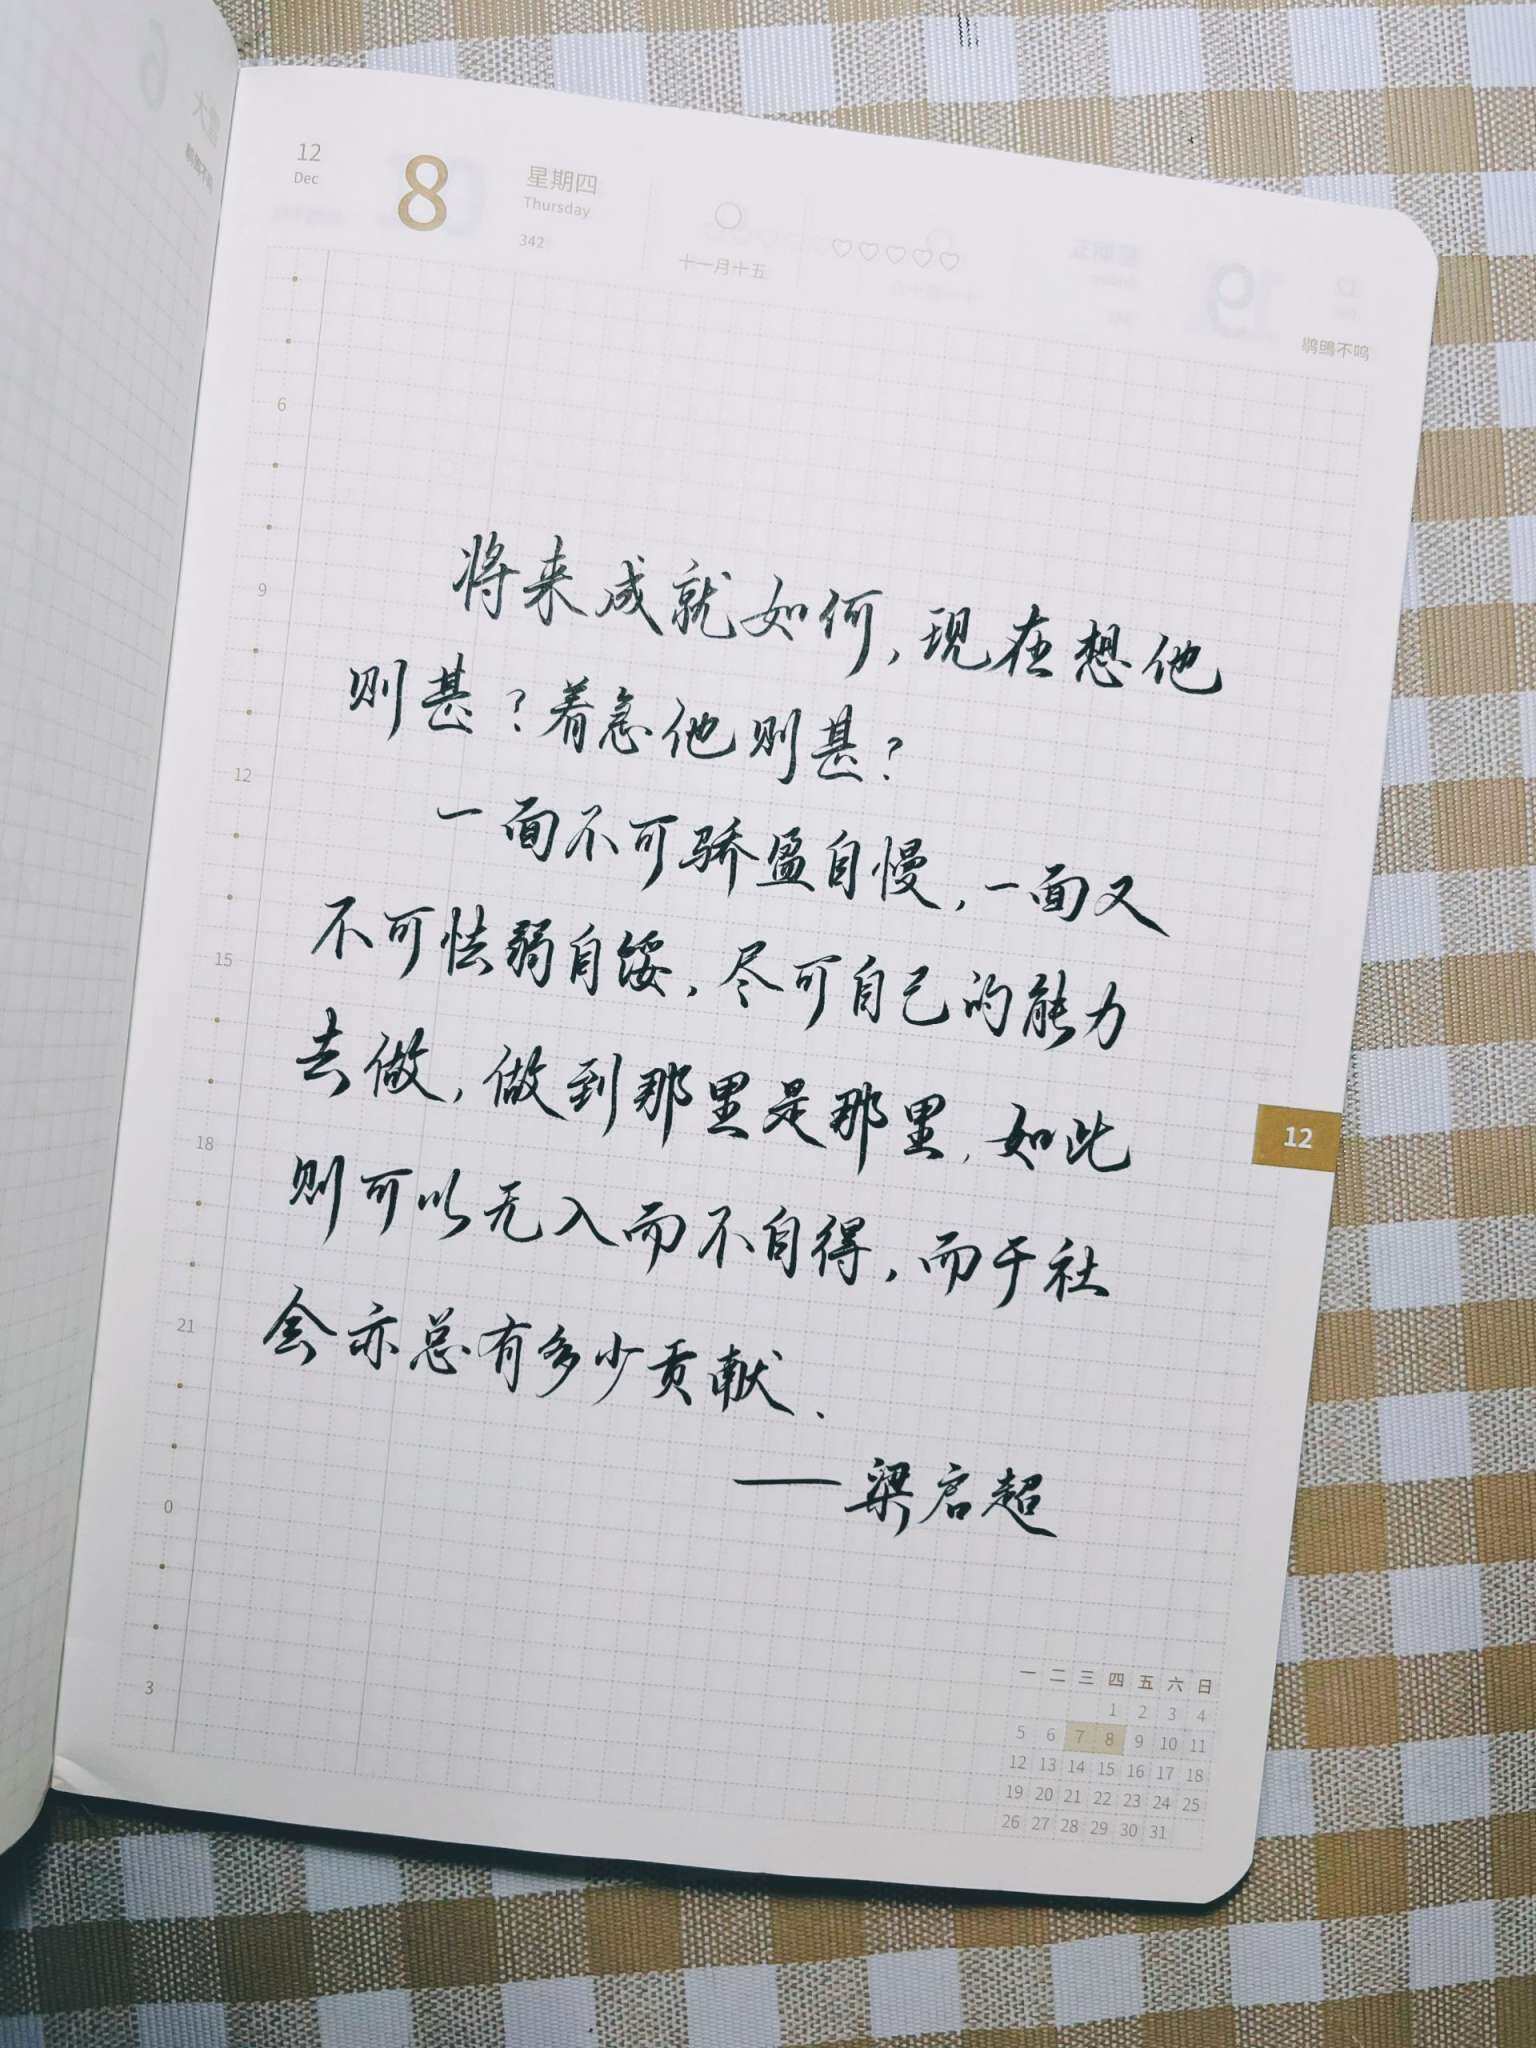 12
Dec
8
星期四
Thursday
342
十一月十五
鹖鴠不鸣
6
9
12
15
18
21
0
3
将来成就如何,现在想他
则甚?着急他则甚?
一面不可骄盈自慢,一面又
不可怯弱自馁,尽可自己的能力
去做,做到那里是那里,如此
则可以无入而不自得,而于社
会亦总有多少贡献、
——梁启超
12
一 二 三 四 五 六 日
1 2 3 4
5 6 7 8 9 10 11
12 13 14 15 16 17 18
19 20 21 22 23 24 25
26 27 28 29 30 31